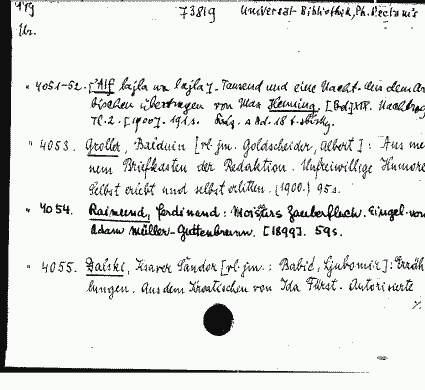 73819 Universal-Bibliothek, Ph. Reclam's
Nr.
" 4051-52. [Alf lajla wa lajla]. Tausend und eine Nacht. Aus dem Ar
bischen übertragen von Max Henning. [Bd] XIX. Nachtrag
Tl. 2. [1900]. 191 s.
" 4053. Groller, Balduin [vl. jm. Goldscheider, Albert]: Aus mei
nem Briefkasten der Redaktion. Unfreiwillige Humore
Selbst erlebt und selbst erlitten. (1900.) 95 s.
" 4054. Raimund, Ferdinand: Moisasurs Zauberfluch. Eingel. von
Adam Müller-Guttenbrunn. [1899]. 59 s.
" 4055. Dalski, Ksaver Šandor [vl. jm.: Babić, Ljubomir]: Erzäh
lungen. Aus dem Kroatischen von Ida Fürst. Autorisierte
%